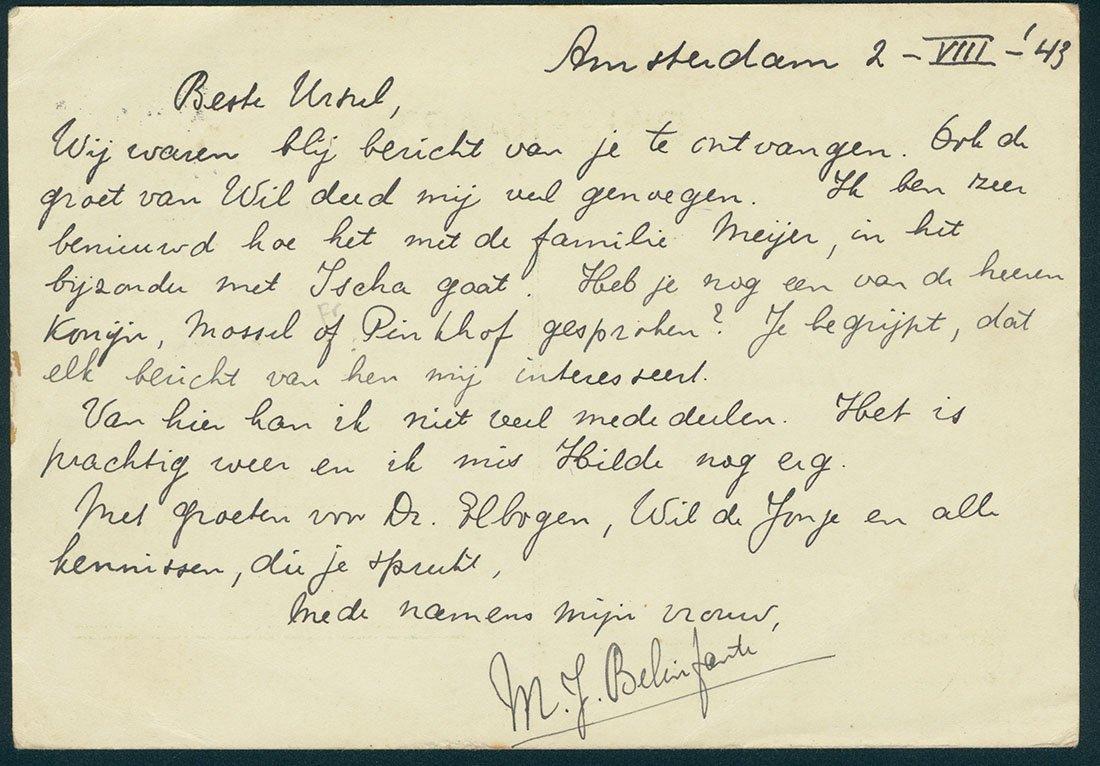 Amsterdam 2 - VIII - '43
Beste Ursel,
Wij waren blij bericht van je te ontvangen. Ook de
groet van Wil deed mij veel genoegen. Ik ben zeer
benieuwd hoe het met de familie Meijer, in het
bijzonder met Ischa gaat. Heb je nog een van de heeren
Konijn, Mossel of Pinkhof gesproken? Je begrijpt, dat
elk bericht van hen mij interesseert.
Van hier kan ik niet veel mededeelen. Het is
prachtig weer en ik mis Hilde nog erg.
Met groeten voor Dr. Elbogen, Wil de Jonge en alle
kennissen, die je spreekt,
mede namens mijn vrouw,
M. J. Belinfante